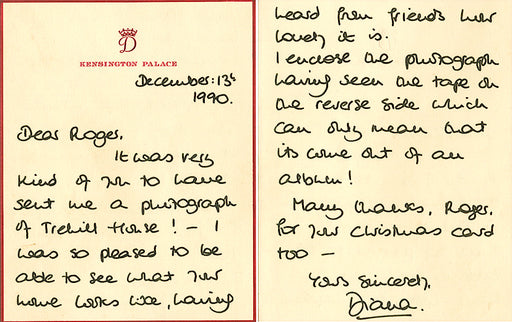 D
KENSINGTON PALACE
December: 13th
1990.
Dear Roger,
It was very
kind of you to have
sent me a photograph
of Trehill House! - I
was so pleased to be
able to see what your
home looks like, having
heard from friends how
lovely it is.
I enclose the photograph
having seen the tape on
the reverse side which
can only mean that
its come out of an
album!
Many thanks, Roger,
for your Christmas card
too -
Yours sincerely,
Diana.